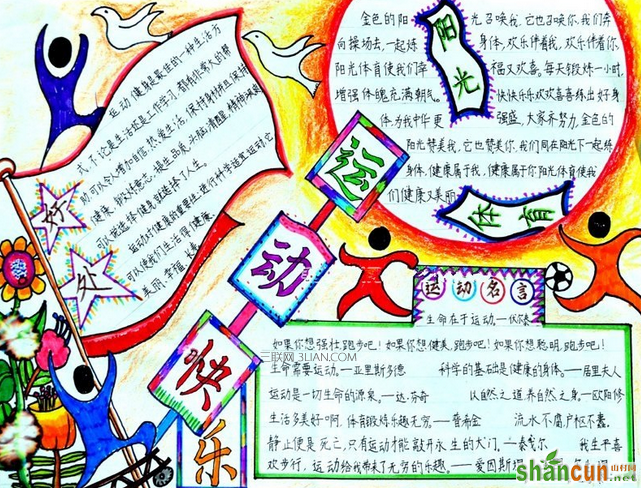 运动快乐
好处
运动健身是最佳的一种生活方
式.不论是生活还是工作学习,都有你宽大的帮
助.可以令人增加自信,热爱生活,保持身材,并且保持
健康,锻炼意志,操生品质,头脑清醒,精神爽爽
可以说选择健身就选择了人生。
运动对健康的重要性,进行科学适宜运动它
可以使我们生活得健康、
美丽、幸福、长寿。
阳光
体育
金色的阳光召唤我,它也召唤你,我们奔
向操场去,一起炼身体,欢乐伴着我,欢乐伴着你,
阳光体育使我们幸福又欢喜。每天锻炼一小时,
增强体魄充满朝气。快快乐乐欢欢喜喜练出好身
体,为我中华更强盛,大家齐努力,金色的
阳光赞美我,它也赞美你,我们同在阳光下一起练
身体,健康属于我,健康属于你阳光体育使我
们健康又美丽
运动名言
生命在于运动—伏尔泰
如果你想强壮,跑步吧!如果你想健美,跑步吧!如果你想聪明,跑步吧!
生命需要运动.——亚里斯多德 科学的基础是健康的身体。——居里夫人
运动是一切生命的源泉,——达·芬奇 从自然之道,养自然之身.—欧阳修
生活多美好啊,体育锻炼乐趣无穷。——普希金 流水不腐户枢不蠹.
静止便是死亡,只有运动才能敲开永生的大门。——泰戈尔 我生平喜
欢步行,运动给我带来了无穷的乐趣.——爱因斯坦
三联网 3LIAN.COM
shancun
山村网
.net